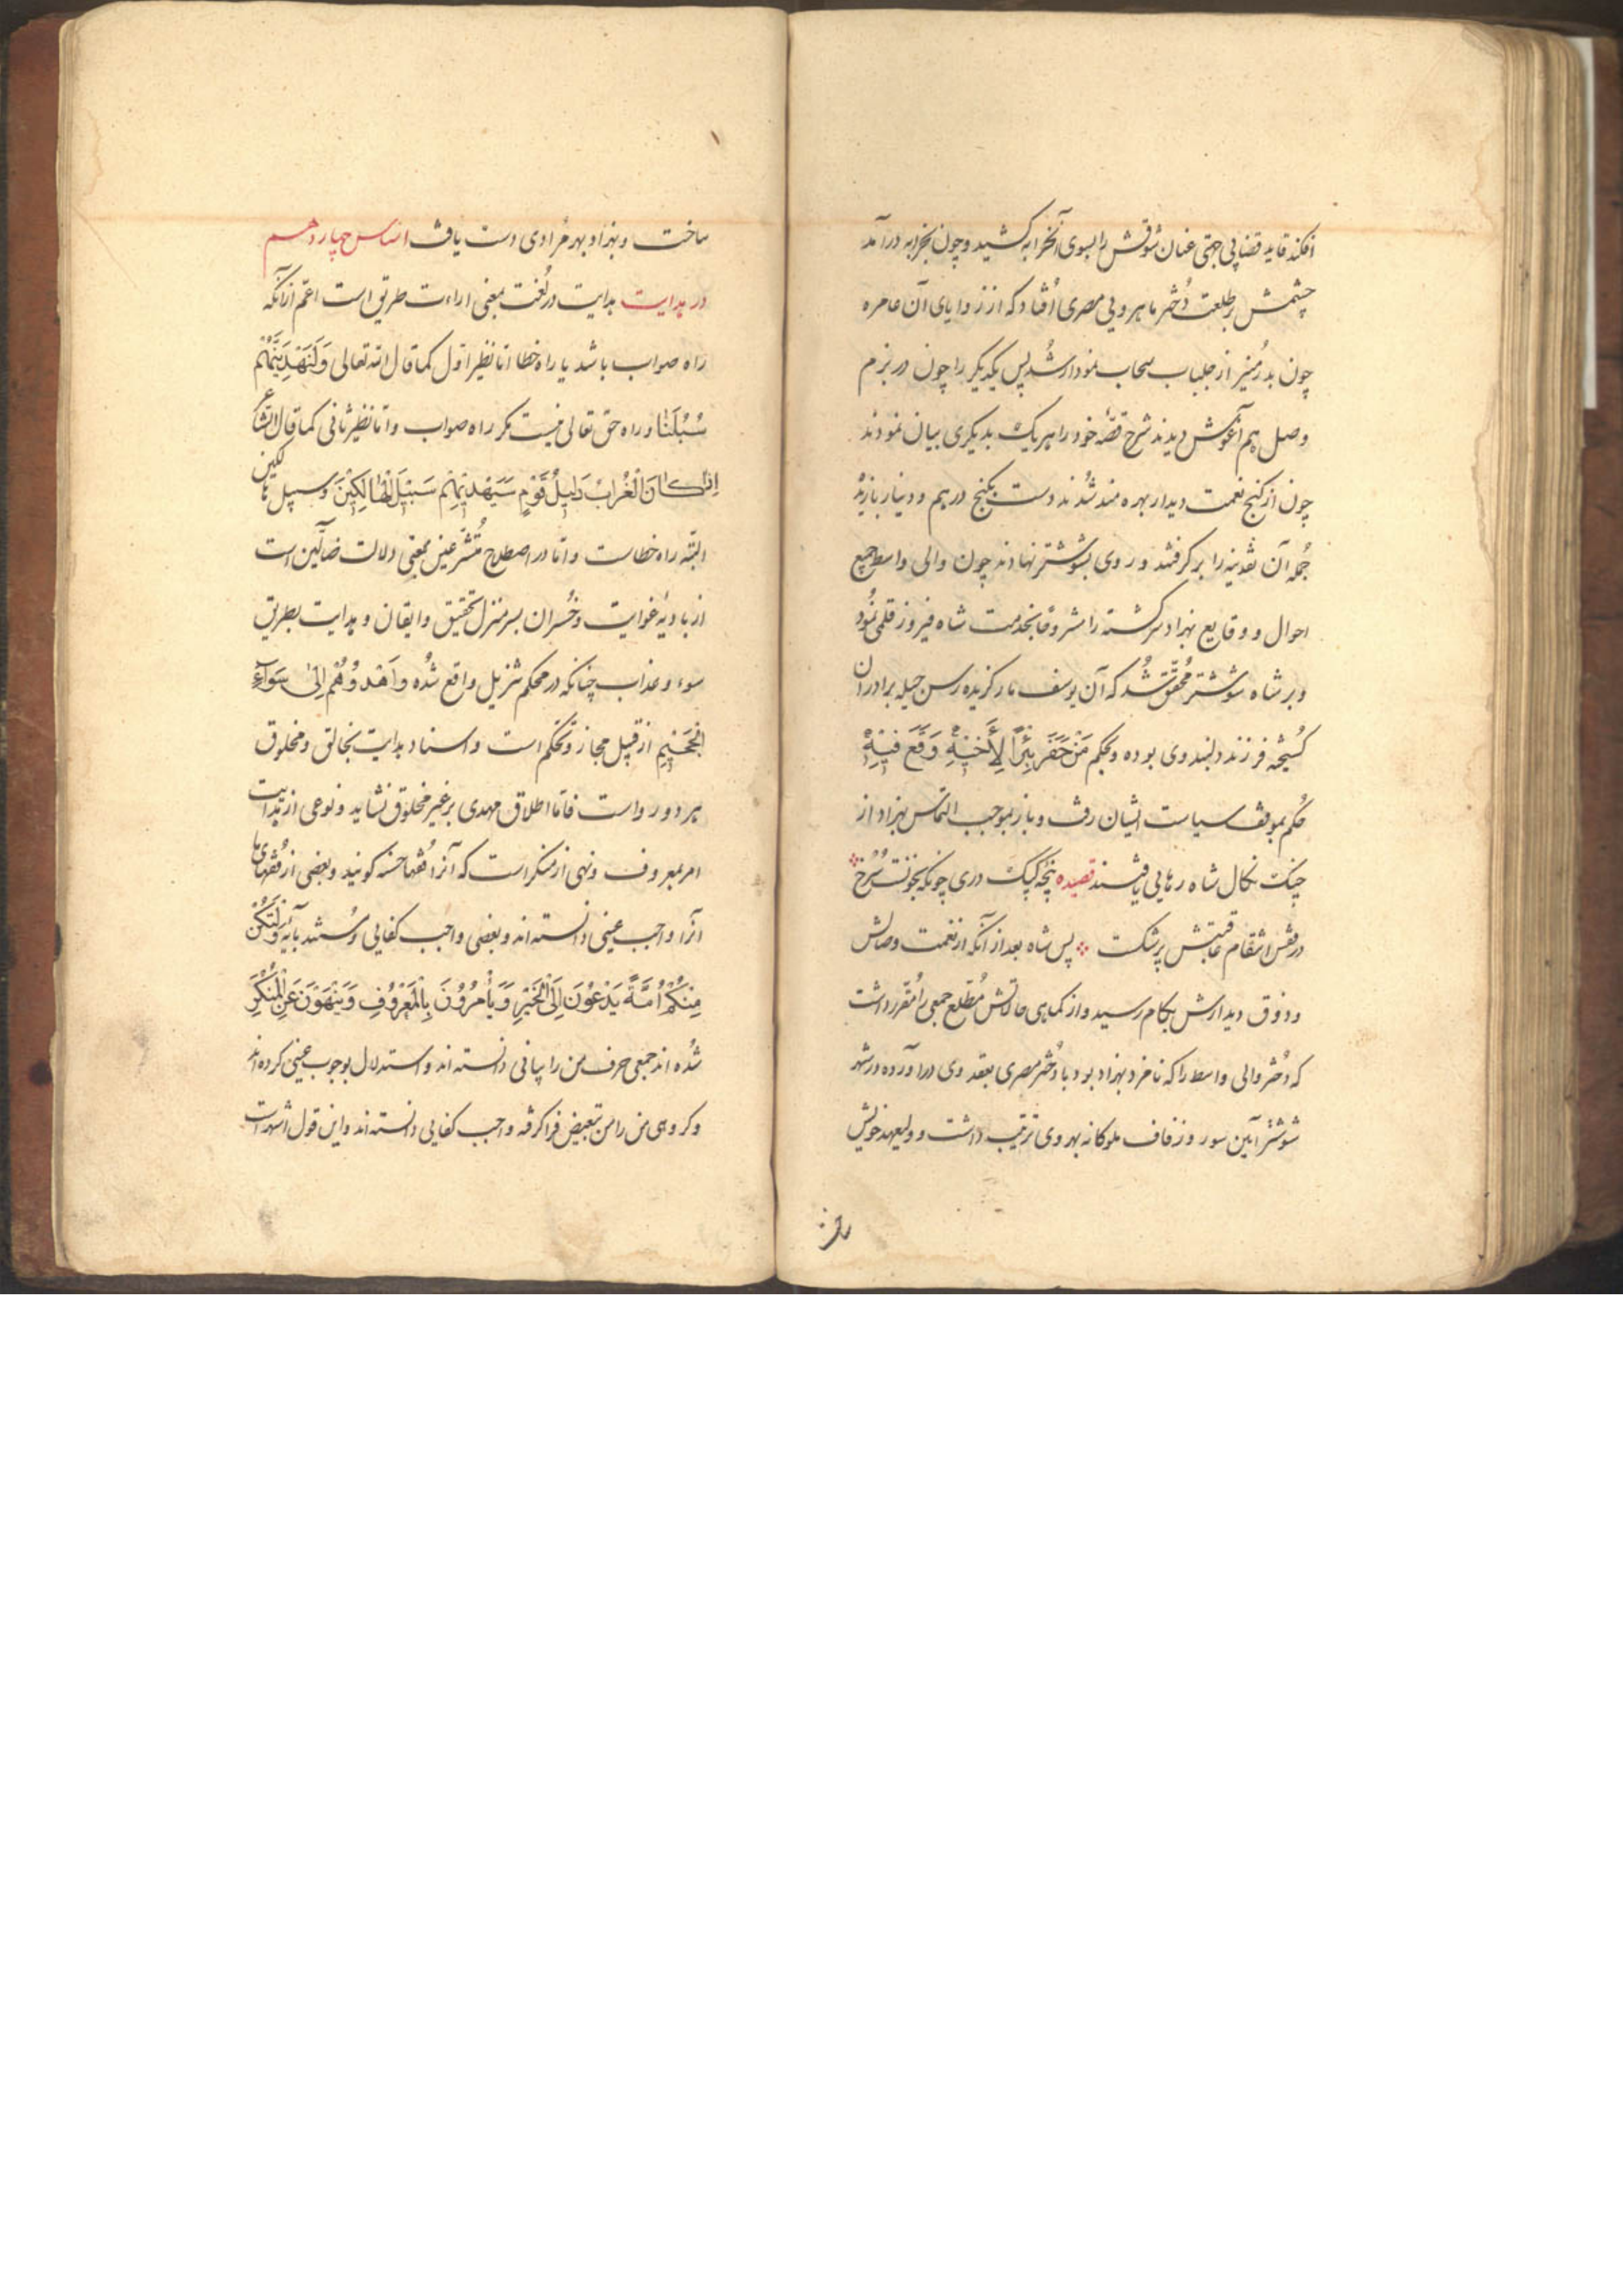 افکند قاید قضا بی جهتی عنان شوقش را بسوی آنخرابه کشید و چون بخرابه درآمد
چشمش بر طلعت دُختر ماهرویی مصری اُفتاد که از زوایای آن عامره
چون بدر مُنیر از جلباب سحاب نمودار شُد پس یکدیگر را چون در بزم
وصل هم آغوش دیدند شرح قصّه خود را هر یک بدیگری بیان نمودند
چون از کنج نعمت دیدار بهره مند شُدند دست بکنج درهم و دینار بازیده
جُمله آن نقدینه را برگرفتند و روی بشوشتر نهادند چون والی واسط جمیع
احوال و وقایع بهزاد سرگشته را مشروحًا بخدمت شاه فیروز قلمی نمُود
و بر شاه شوشتر مُحقّق شُد که آن یوسف نارکزیده رسن حیله برادران
کسُیخه فرزند دلبند وی بوده و بحکم مَنْ حَفَرَ بِئْراً لِأَخیٖهِ وَقَعَ فیٖهِ
حُکم بموقف سیاست ایشان رفت و باز بموجب التماس بهزاد از
چنک نکال شاه رهایی یافتند قصیده پنّجه کبک دری چونکه بخونت سُرخ
درقفس انتقام عاقبتش پر شکت پس شاه بعد از آنکه از نعمت وصالش
و ذوق دیدارش بکام رسید و از کماهی حالاتش مُطّلع جمعی را مُقرر داشت
که دُختر والی واسط را که نامزد بهزاد بود با دُختر مصری بعقد وی درآورده در شهر
شوشتر آیین سور و زفاف ملوکانه بهر وی ترتیب داشت و ولیعهد خویش
ساخت و بهزاد بهر مُرادی دست یافت اساس چهاردهم
در هدایت هدایت در لُغت بمعنی اراءت طریق است اعمّ از آنکه
راه صواب باشد یا راه خطا امّا نظیر اوّل کما قال الله تعالی وَلَنَهْدِیَنَّهُمْ
سُبُلَنٰا و راه حق تعالی نیست مگر راه صواب و امّا نظیر ثانی کما قال الشاعر
اِذٰا کٰانَ الْغُرٰابُ دَلیٖلُ قَوْمٍ سَیَهْدیٖهِمْ سَبیٖلَ الْهٰالِکیٖنَ و سبیل هالکین
البتّه راه خطاست و امّا در اصطلاح مُتشرّعین بمعنی دلالت ضآلّین است
از بادیهٔ غوایت و خُسران بسر منزل تحقیق و ایقان و هدایت بطریق
سوء و عذاب چنانکه در محکم تنزیل واقع شُده و اَهْدُوْهُمْ اِلیٰ سَوٰآءِ
الْجَحیٖمِ از قبیل مجاز و تحکّم است و اسناد هدایت بخالق و مخلوق
هر دو رواست فامّا اطلاق مهدی بر غیر مخلوق نشاید و نوعی از هدایت
امر بمعروف و نهی از منکر است که آنرا فُقها حسنه کویند و بعضی از فُقهای ما
آنرا واجب عینی دانسته اند و بعضی واجب کفایی و مُستند بآیهٔ وَلْتَکُنْ
مِنْکُمْ اُمَّةٌ یَدْعُوْنَ اِلَی الْخَیْرِ وَ یَأْمُرُوْنَ بِالْمَعْرُوْفِ وَ یَنْهَوْنَ عَنِ الْمُنْکَرِ
شُده اند جمعی حرف من را بیانی دانسته اند و استدلال بوجوب عینی کرده اند
و کروهی من را من تبعیض فرا کرفته واجب کفایی دانسته اند و این قول اشهر است